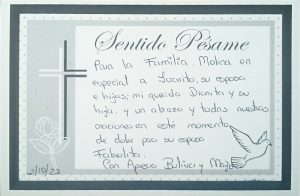 Sentido Pésame
Para la Familia Molina en
especial a Juanito, su esposa
e hijas; mi querida Dianita y su
hija y un abrazo y todas nuestras
oraciones en este momento
de dolor por su esposa
Fabiolita.
Con Aprecio Bolívar y
2/10/23